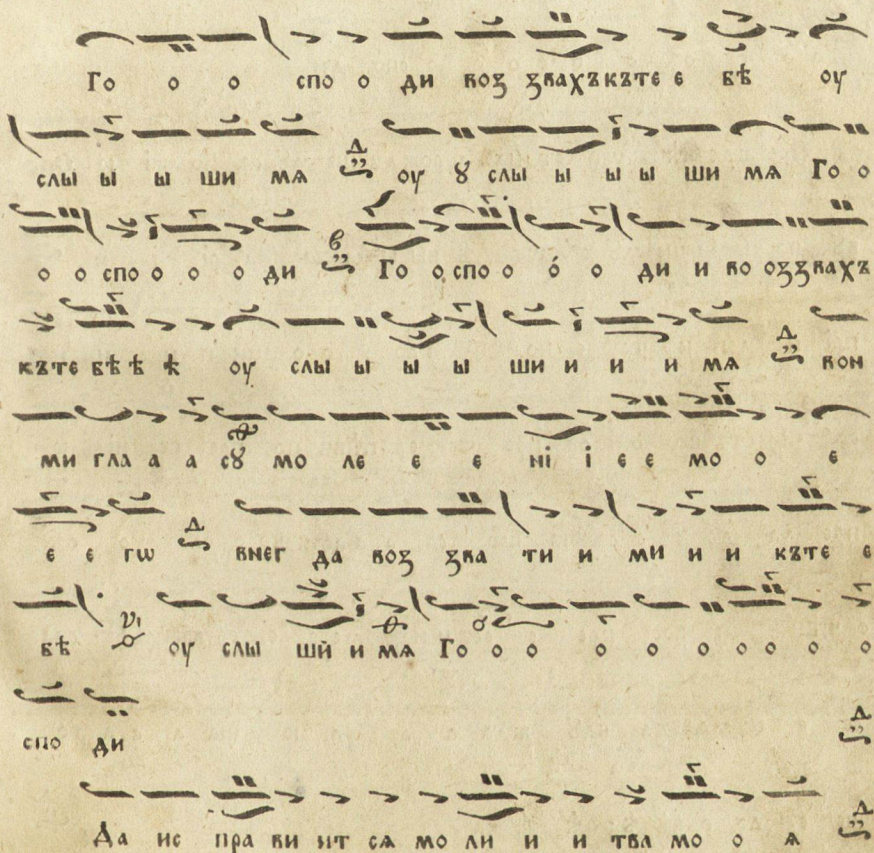 Го о о спо о ди воз звахъкъте е бѣ оу
слы ы ы ши мя оу ꙋ слы ы ы ы ши мя Го о
о о спо о о о ди Го о спо о о́ о ди и во оззвахъ
къте бѣ ѣ ѣ оу слы ы ы ы ши и и и мя вон
ми гла а а сꙋ мо ле е е ні і е е мо о е
е е гѡ внег да воз зва ти и ми и и къте е
бѣ оу слы ши и мя Го о о о о о о о о о
спо ди
Да ис пра ви ит ся мо ли и и твл мо о я